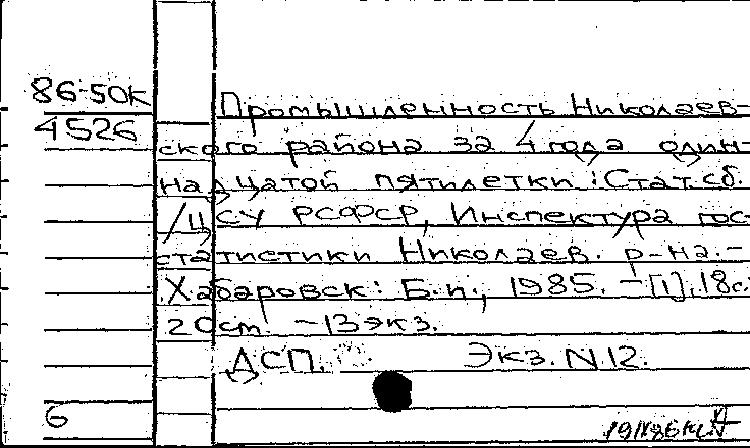 86-50К
4526
Промышленность Николаев-
ского района за 4 года один-
надцатой пятилетки: Стат. сб.
/ЦСУ РСФСР, Инспектура гос-
статистики Николаев. р-на. -
Хабаровск: Б.и., 1985. - [1], 18с.
20см - 13экз.
ДСП. Экз. N.12.
6